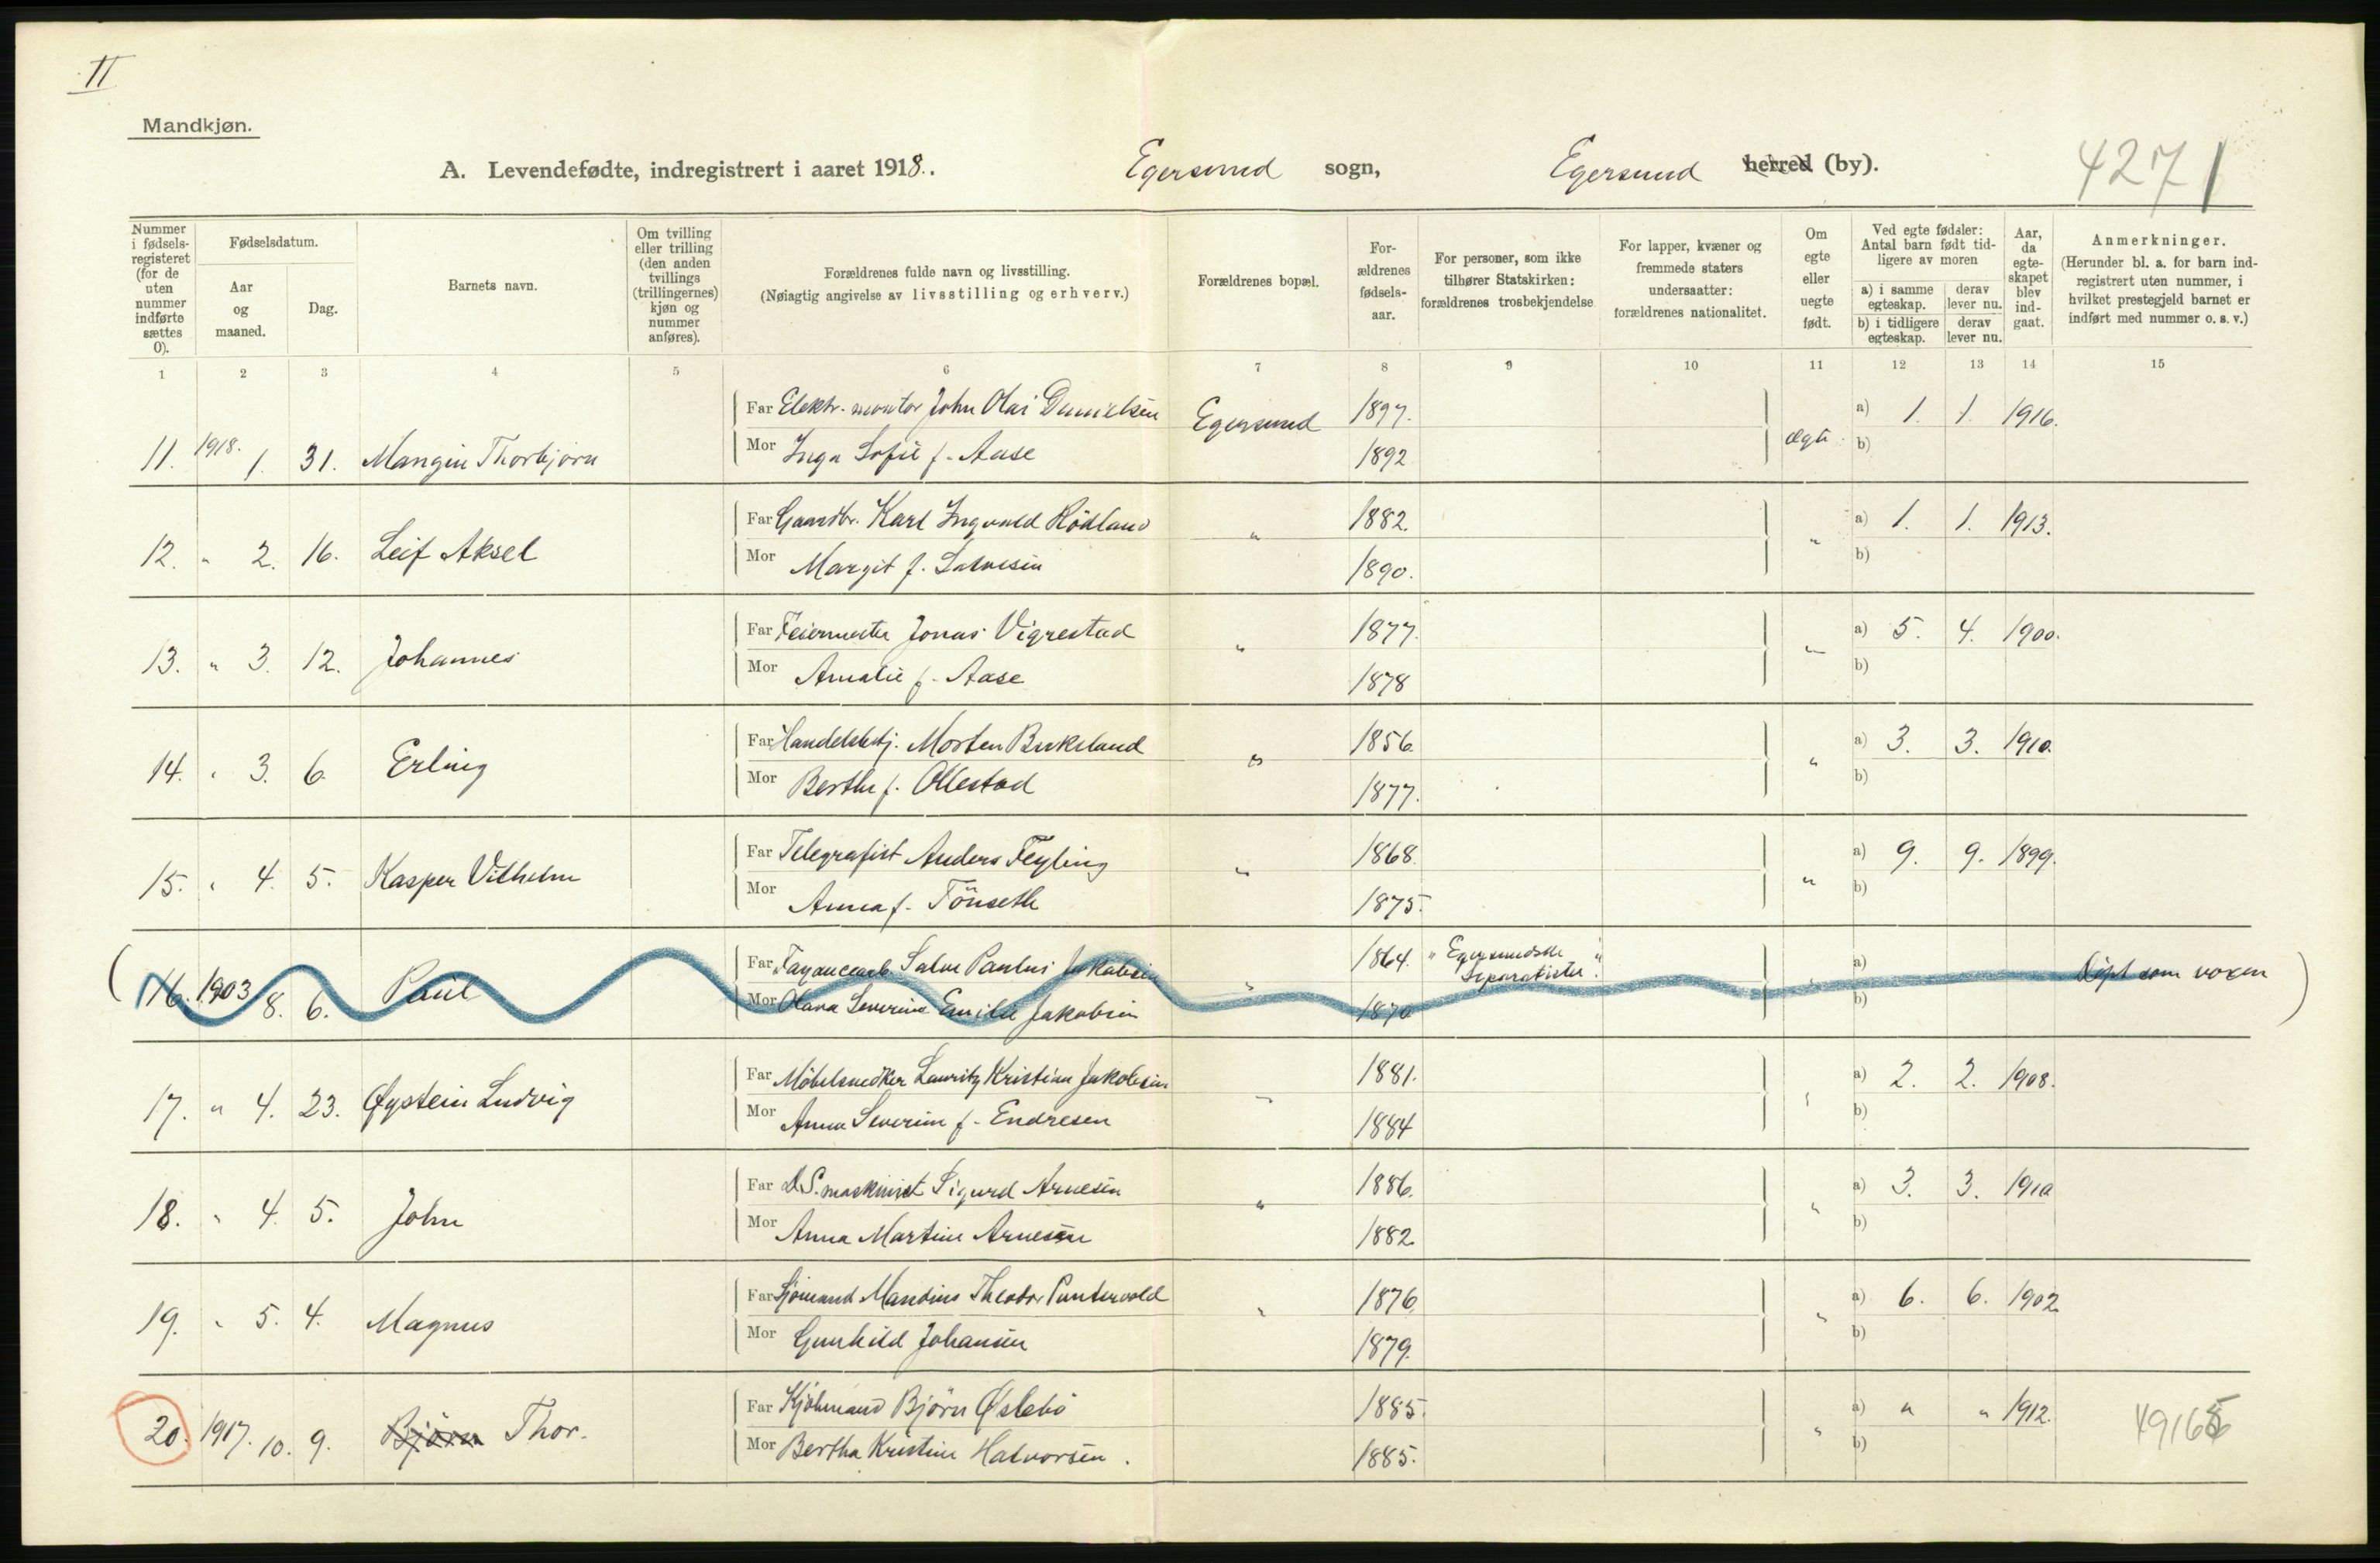 II
Mandkjøn.
A. Levendefødte, indregistrert i aaret 1918. Egersund sogn, Egersund herred (by). 4271
Nummer i fødselsregisteret (for de uten nummer indførte sættes 0).
Fødselsdatum.
Aar og maaned.
Dag.
Barnets navn.
Om tvilling eller trilling (den anden tvillings (trillingernes) kjøn og nummer anføres).
Forældrenes fulde navn og livsstilling.
(Nøiagtig angivelse av livsstilling og erhverv.)
Forældrenes bopæl.
Forældrenes fødselsaar.
For personer, som ikke tilhører Statskirken: forældrenes trosbekjendelse
For lapper, kvæner og fremmede staters undersaatter: forældrenes nationalitet.
Om egte eller uegte født.
Ved egte fødsler: Antal barn født tidligere av moren
a) i samme egteskap. derav lever nu.
b) i tidligere egteskap. derav lever nu.
Aar, da egteskapet blev indgaat.
Anmerkninger.
(Herunder bl. a. for barn indregistrert uten nummer, i hvilket prestegjeld barnet er indført med nummer o. s. v.)
1 2 3 4 5 6 7 8 9 10 11 12 13 14 15
Far Elektr. montør John Olai Danielsen Egersund 1897. a) 1. 1. 1916.
11. 1918. 1. 31. Thorbjørn Mor Inga Sofie f. Aase 1892 ægte b)
Far Karl Ingvald Rödland 1882. a) 1. 1. 1913.
12. " 2. 16. Leif Aksel Mor Margit f. Salvesen " 1890. " b)
Far Feiermester Jonas Vigrestad 1877. a) 5. 4. 1900.
13. " 3. 12. Johannes Mor Amalie f. Aase " 1878 " b)
Far Handelsbetj. Morten Birkeland 1856. a) 3. 3. 1910.
14. " 3. 6. Erling Mor Berthe f. Ollestad " 1877. " b)
Far Telegrafist Anders Feyling 1868. a) 9. 9. 1899.
15. " 4. 5. Kasper Vilhelm Mor Anna f. Tönseth " 1875. " b)
Far Fayancearb. Salve Paulus Jakobsen 1864. "Egersundske Separatister". a)
(16. 1903 8. 6. Paul Mor Olava Severine Emilie Jakobsen " 1870 " b) Døpt som voxen)
Far Möbelsnedker Lauritz Kristian Jakobsen 1881. a) 2. 2. 1908.
17. " 4. 23. Øystein Ludvig Mor Anna Severine f. Endresen " 1884 " b)
Far D.S. maskinist Sigurd Arnesen 1886. a) 3. 3. 1910
18. " 4. 5. John Mor Anna Martine Arnesen " 1882 " b)
Far Sjömand Mandius Theodor Puntervold 1876 a) 6. 6. 1902
19. " 5. 4. Magnus Mor Gunhild Johansen " 1879. " b)
Far Kjöbmand Björn Øslebö 1885. a) " " 1912.
20. 1917. 10. 9. Björn Thor. Mor Bertha Kristine Halvorsen. 1885. " b) 49165